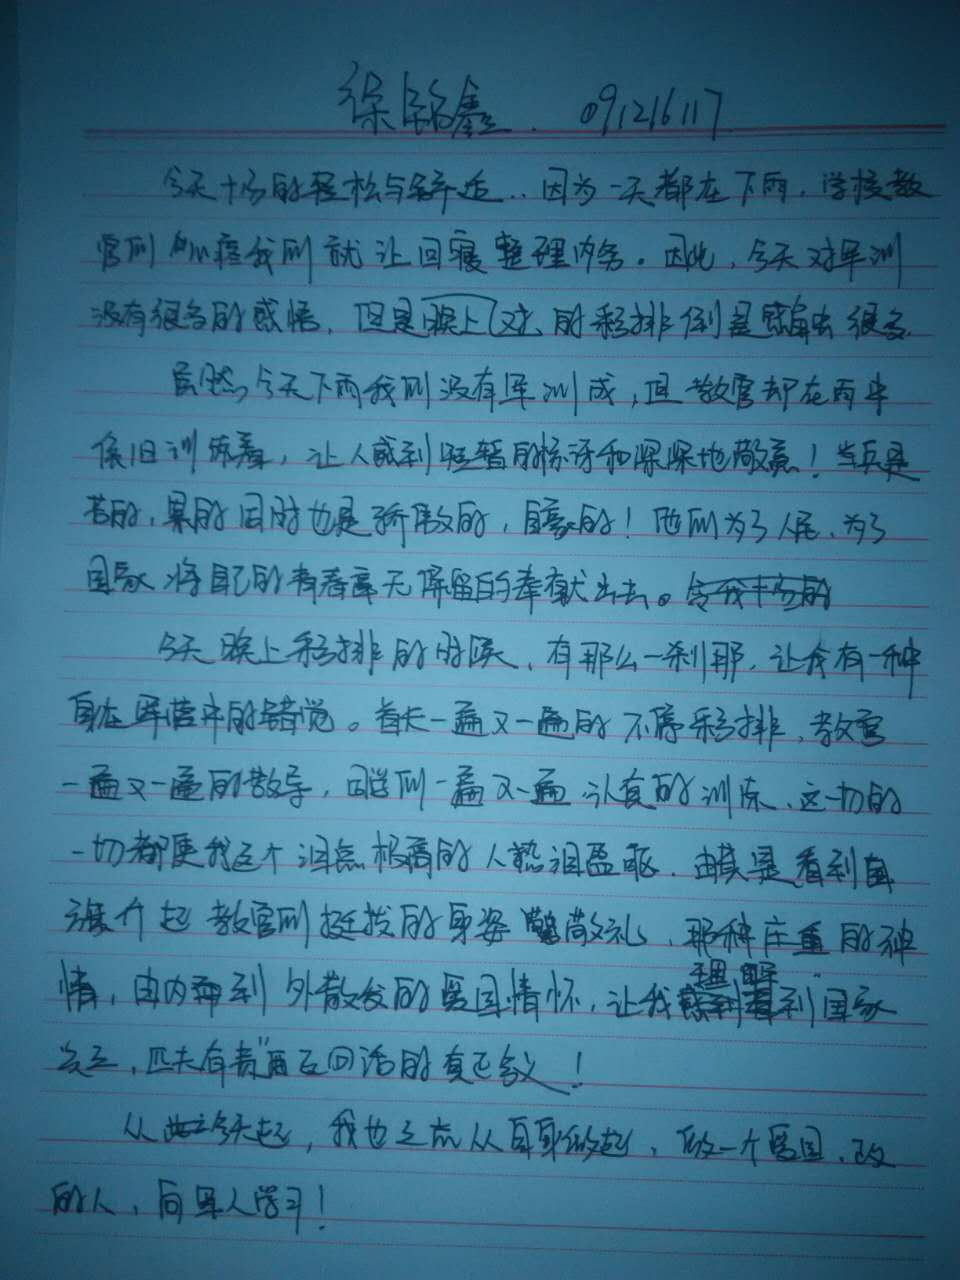 徐铭鑫. 091216117
今天十分的轻松与舒适..因为一天都在下雨，学校教
官们心疼我们就让回寝整理内务。因此，今天对军训
没有很多的感悟，但是晚上对的彩排倒是感触很多
虽然今天下雨我们没有军训成，但教官却在雨中
依旧训练着，让人感到短暂的惊讶和深深地敬意！当兵是
苦的，累的同时也是骄傲的，自豪的！他们为了人民、为了
国家将自己的青春毫无保留的奉献出去。令我十分的
今天晚上彩排的时候，有那么一刹那，让我有一种
身在军营中的错觉。首长一遍又一遍的不停彩排，教官
一遍又一遍的教导，同学们一遍又一遍认真的训练、这一切的
一切都使我这个泪点极高的人热泪盈眶.尤其是看到国
旗升起教官们挺拔的身姿敬礼、那种庄重的神
情，由内到外散发的爱国情怀，让我理解到国家
兴亡，匹夫有责"这句话的真正含义！
从今天起，我也应从自身做起、做一个爱国、
的人，向军人学习！